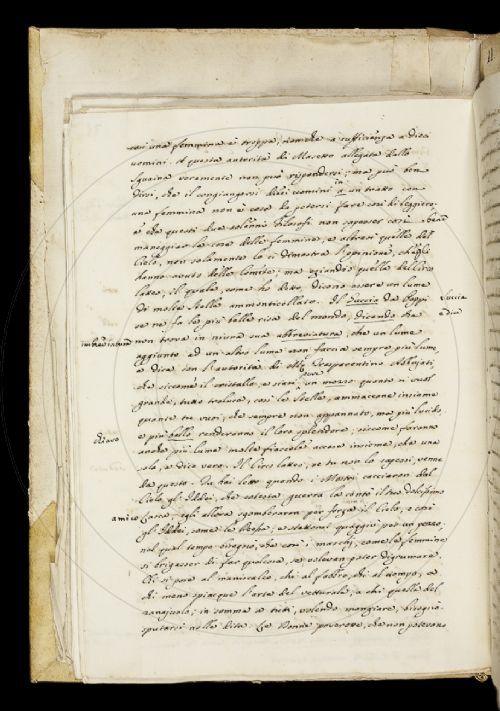 con una femmina è troppo, nonchè a sufficienza a dieci
uomini. A questa autorità di Masetto allegata dallo
Sguaina veramente non può rispondersi; ma può ben
dirsi, che il congiungersi dieci uomini in a un tratto con
una femmina non è cosa da potersi fare così di leggiero.
e che questi due solenni Filosofi non sapeser così bene
maneggiar le cose delle femmine, e altresì quelle del
Cielo, non solamente lo ci dimostra l'opinione, ch'egli
hanno avuto delle Comete; ma eziandio quella del Circo
latteo, il quale, come ho detto, dicono essere un lume
di molte stelle ammonticellato. Il Luccia da
se ne fa le più belle risa del mondo, dicendo che
non trova in niuna sua abbreviatura, che un lume
aggiunto ad un altro lume non faccia sempre più lume,
e dice con l'autorità di
che siccome il cristallo, e sieti pure un mozzo quanto si vuol
grande, tutto traluce, così le stelle, ammaccane insieme
quante tu vuoi, che sempre non appannato, ma più lucido,
e più bello renderanno il loro splendore, siccome faranno
anche più lume molte fiaccole accese insieme, che una
sola, e dice vero. Il Circo latteo, se tu non lo sapessi, venne
da questo. Tu hai letto quando i Mostri cacciaron dal
Cielo gli Iddei, che cotesta guerra la contò il tuo dolcissimo
Lasca; egli allora sgomberaron per forza il Cielo, e così
gli Iddei, come le Dee; e stettonsi quaggiù per un pezzo,
nel qual tempo bisognò, che così i maschj, come le femmine
si brigasser di far qualcosa, se volevan poter digrumare.
Chi si pose al maniscalco, chi al fabbro, chi al
chi meno spiacque l'arte del vetturale, a chi quella del
zanajuolo; in somma a tutti, volendo mangiare, bisognò
sputarsi nelle dita. Le Donne poverette, che non potevano
Luccia
e dice
imbreviatura
chiaro
amico